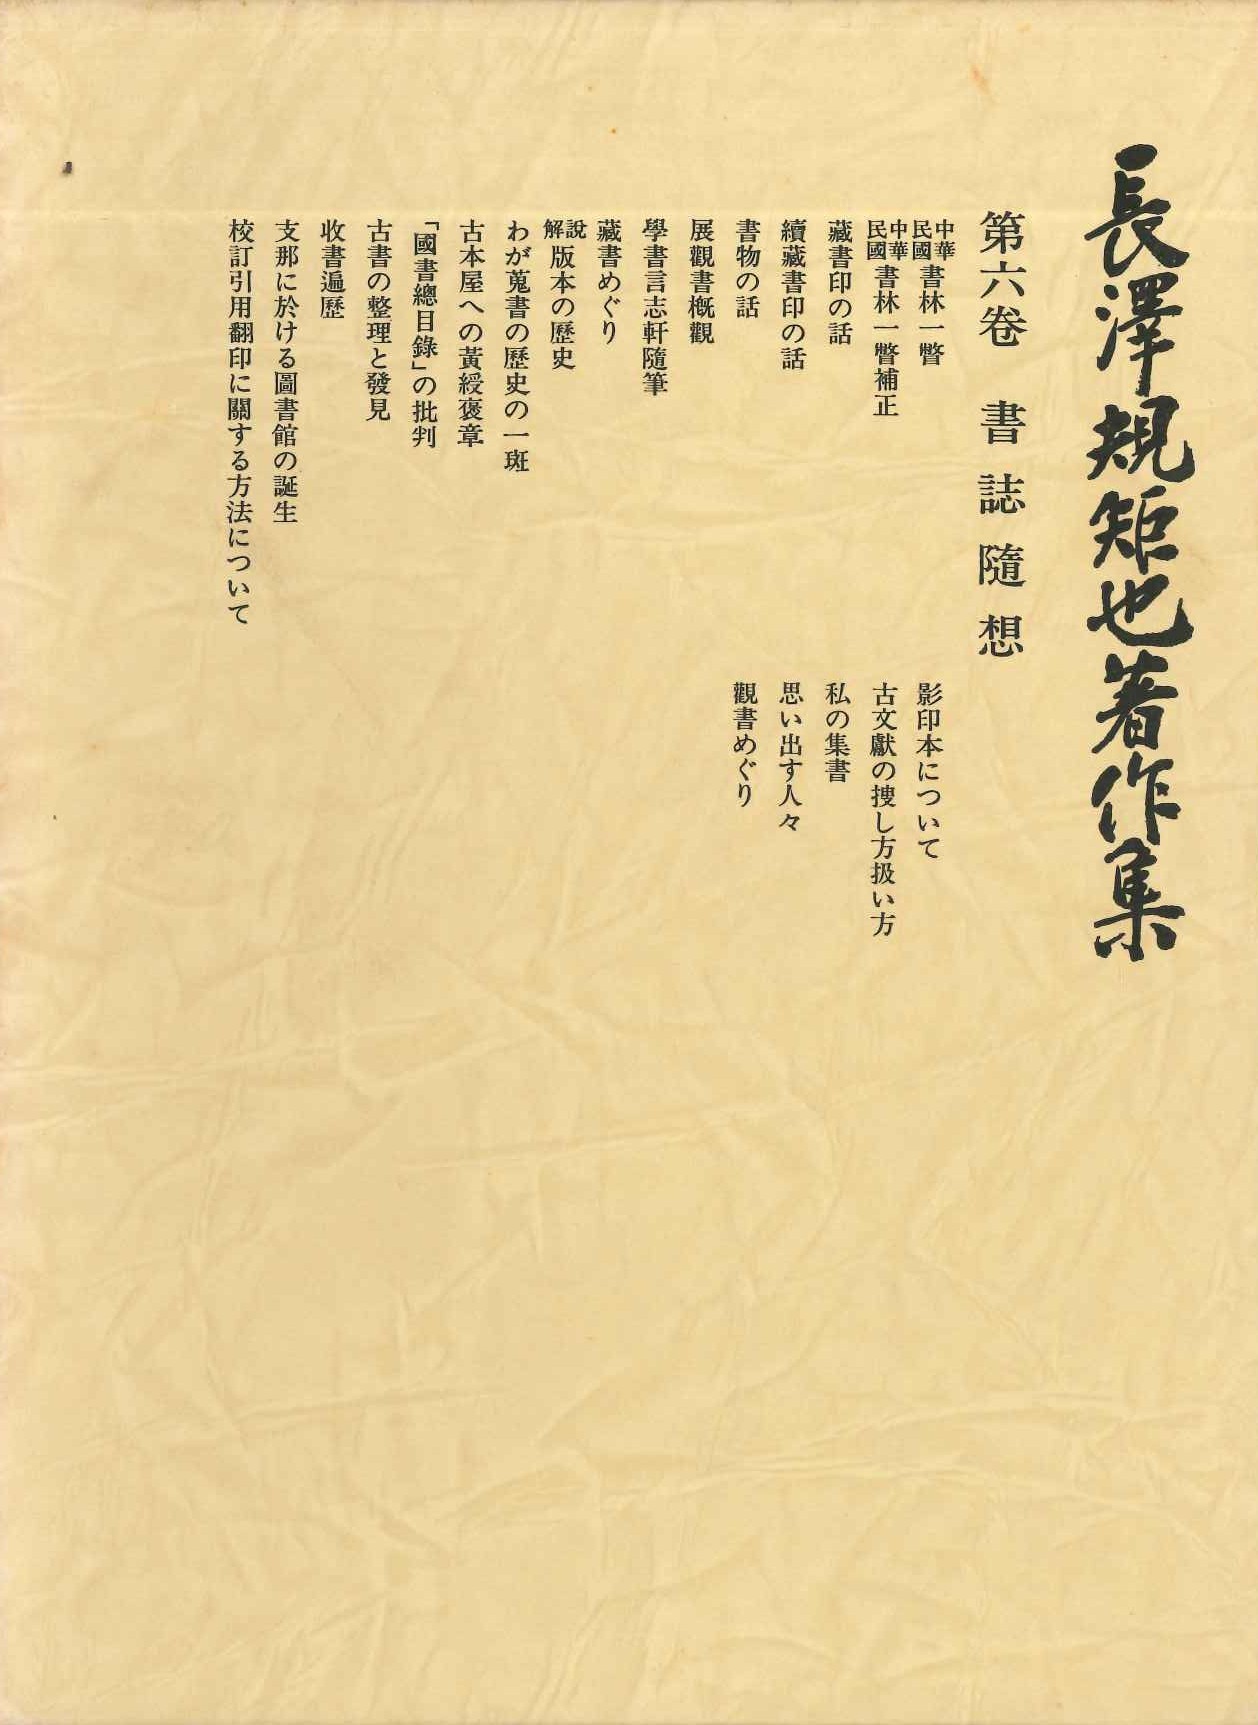 長澤規矩也著作集
第六卷 書誌隨想
中華民國書林一瞥
中華民國書林一瞥補正
藏書印の話
續藏書印の話
書物の話
展觀書槪觀
學書言志軒隨筆
藏書めぐり
解說版本の歷史
わが蒐書の歷史の一斑
古本屋への黃綬褒章
「國書總目錄」の批判
古書の整理と發見
收書遍歷
支那に於ける圖書館の誕生
校訂引用翻印に關する方法について
影印本について
古文獻の搜し方扱い方
私の集書
思い出す人々
觀書めぐり